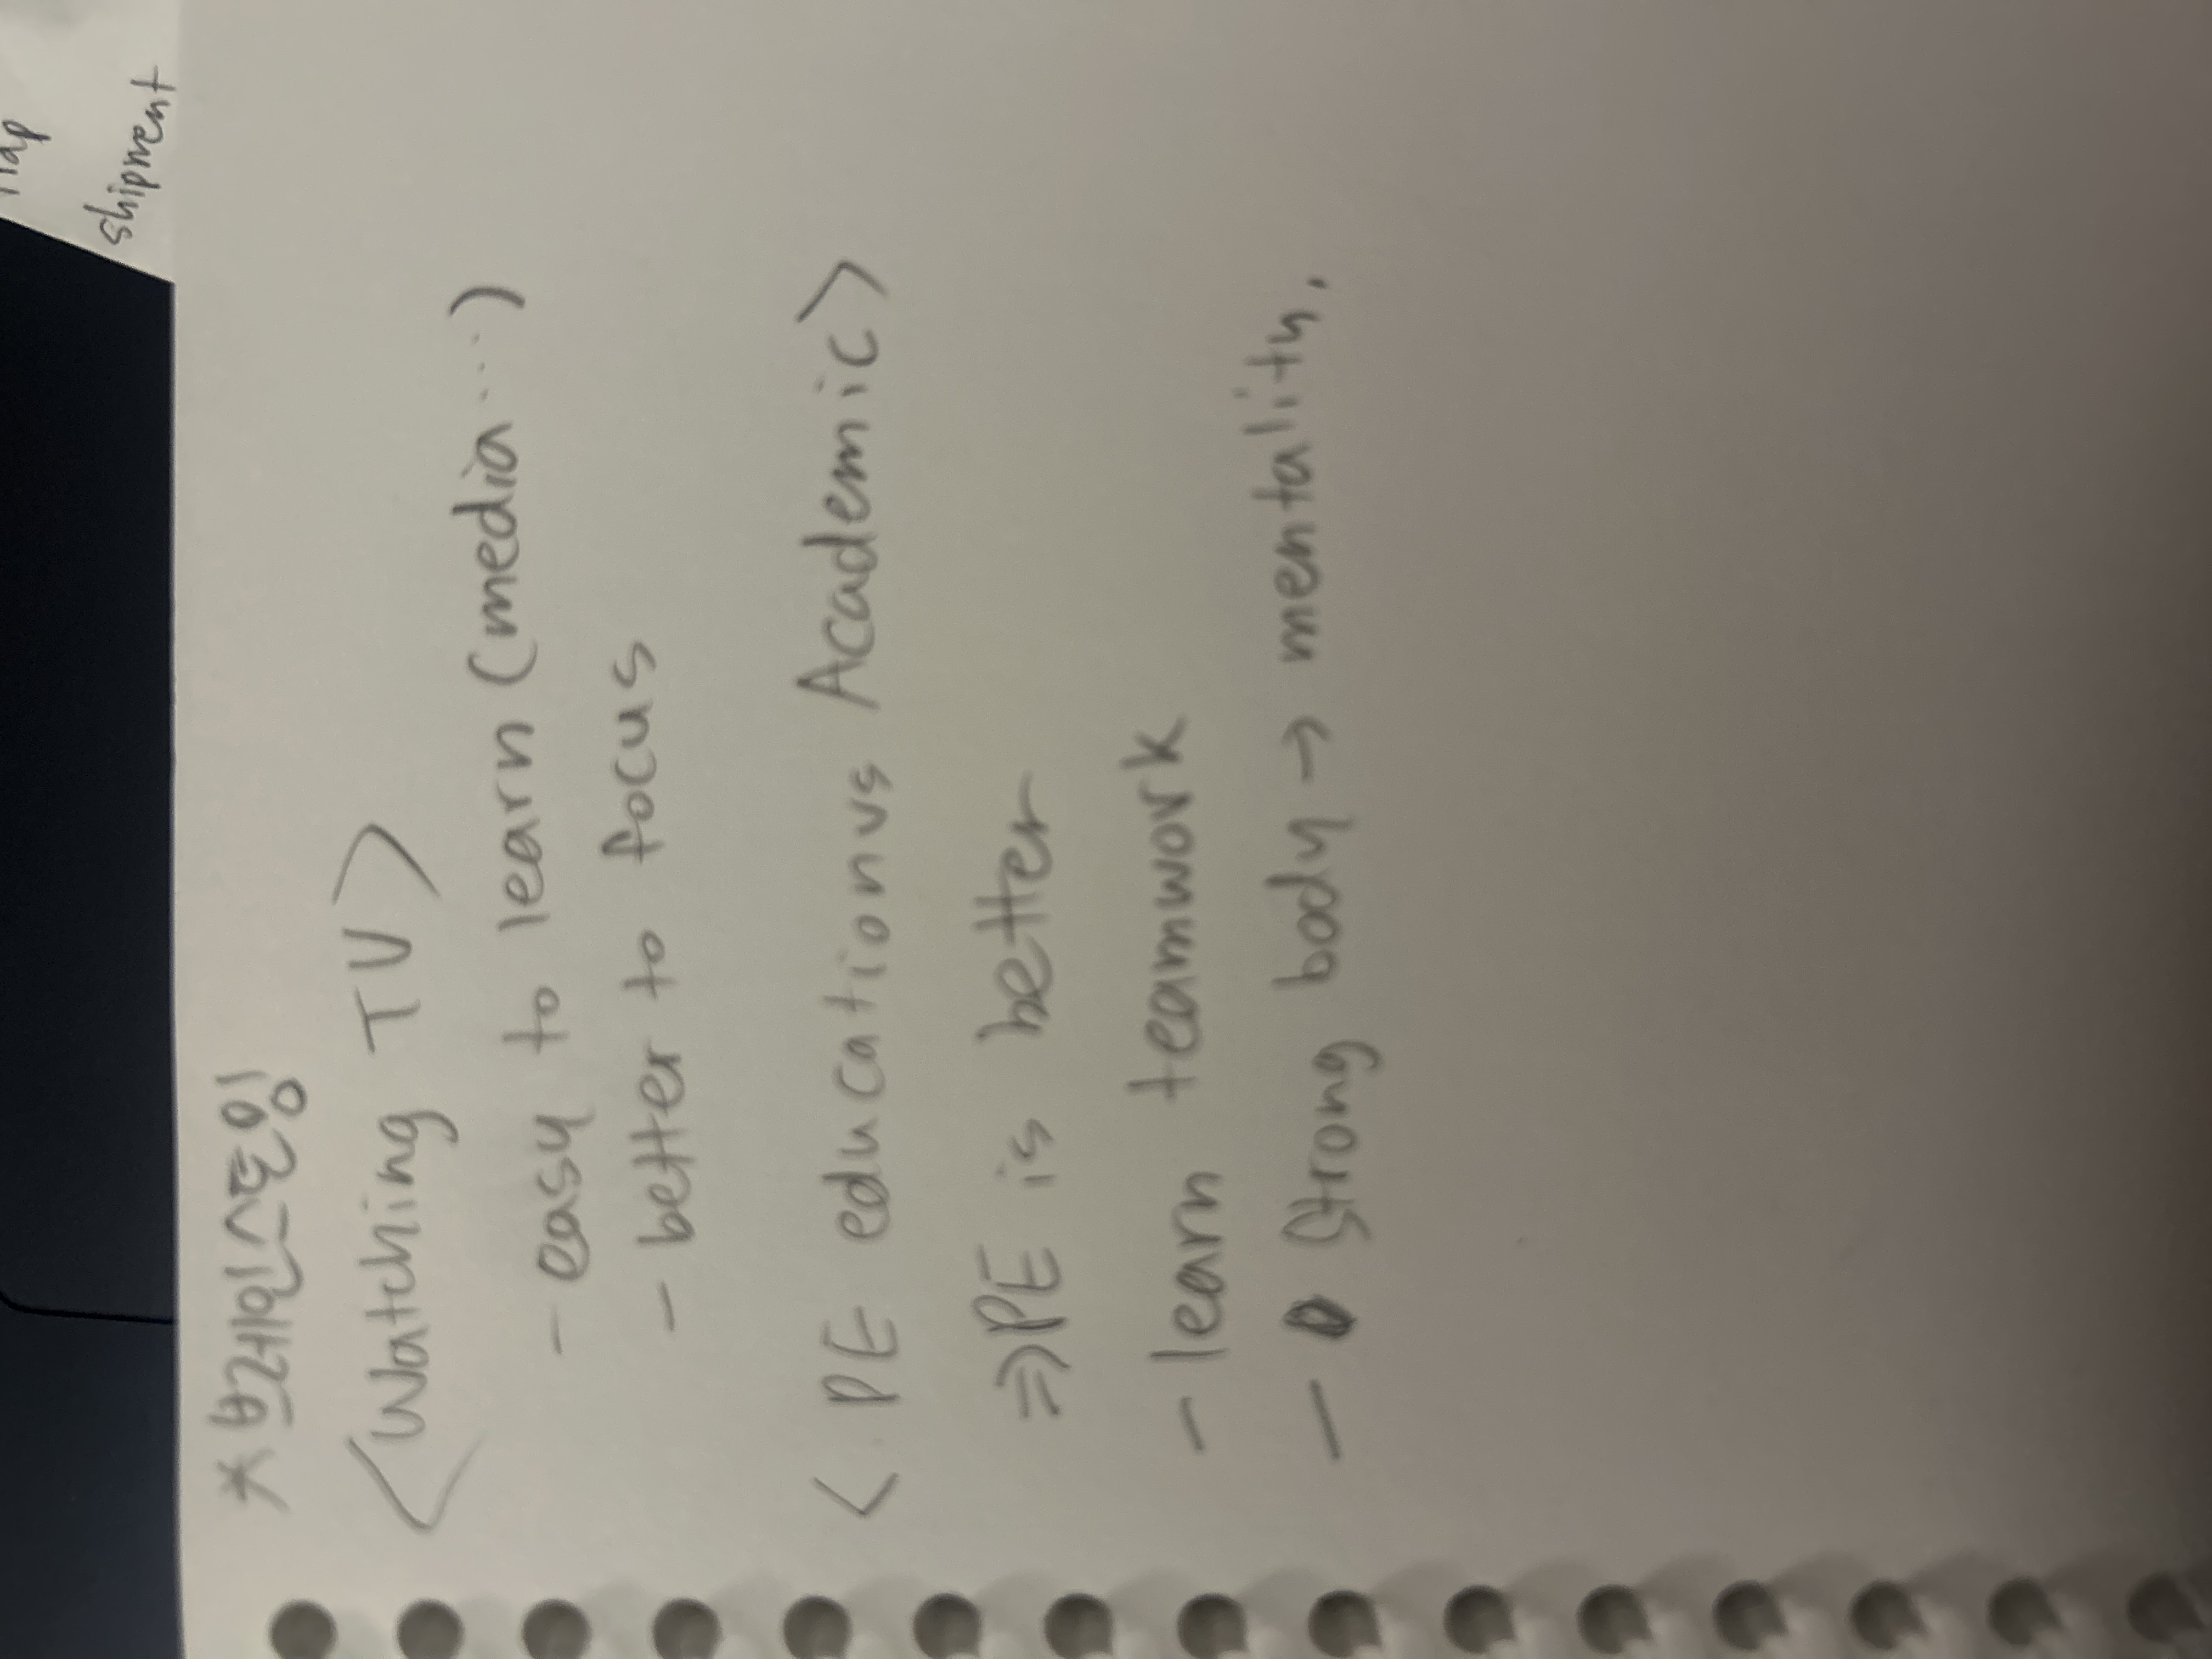 shipment
* 브레인스토밍
<Watching TV>
- easy to learn (media...)
- better to focus
< PE education vs Academic>
⇒ PE is better
- learn teamwork
- strong body → mentality.